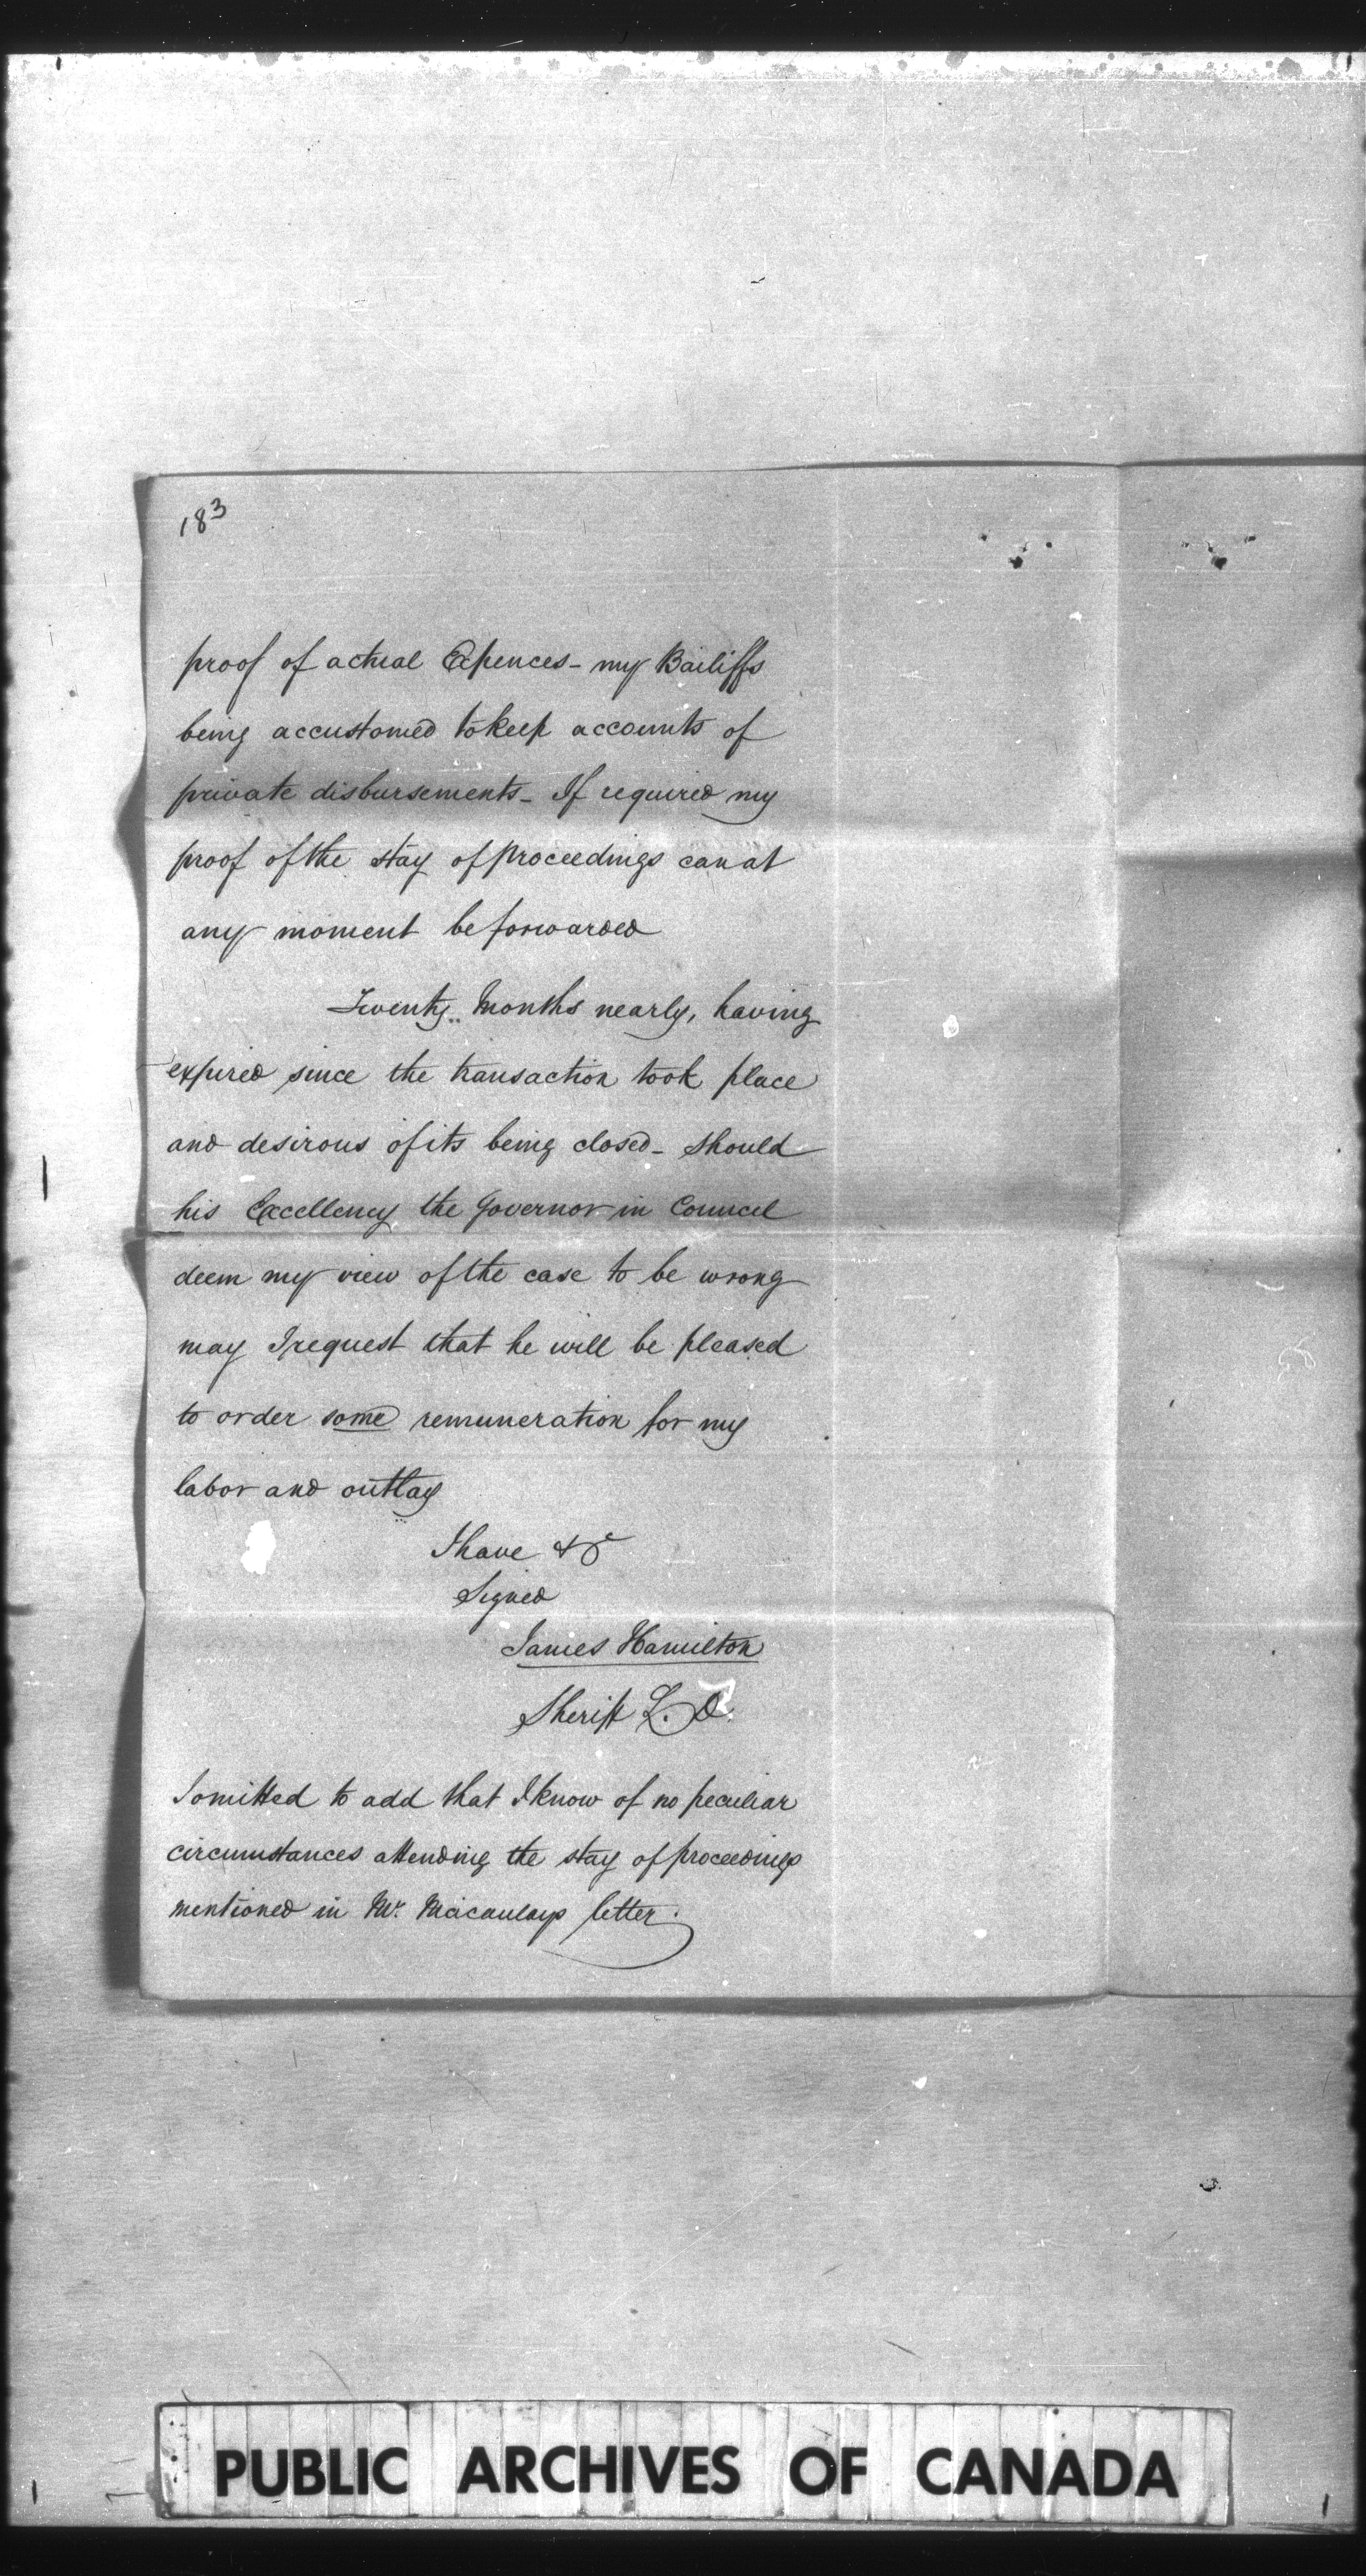 183
proof of actual Expences - my Bailiffs
being accustomed to keep accounts of
private disbursements - If required my
proof of the stay of proceedings can at
any moment be forwarded
Twenty Months nearly, having
expired since the transaction took place
and desirous of its being closed - should
his Excellency the Governor in Council
deem my view of the case to be wrong
may I request that he will be pleased
to order some remuneration for my
labor and outlay
I have &c
Signed
James Hamilton
Sheriff L. D.
I omitted to add that I know of no peculiar
circumstances attending the stay of proceedings
mentioned in Mr. Macaulays letter.
PUBLIC ARCHIVES OF CANADA